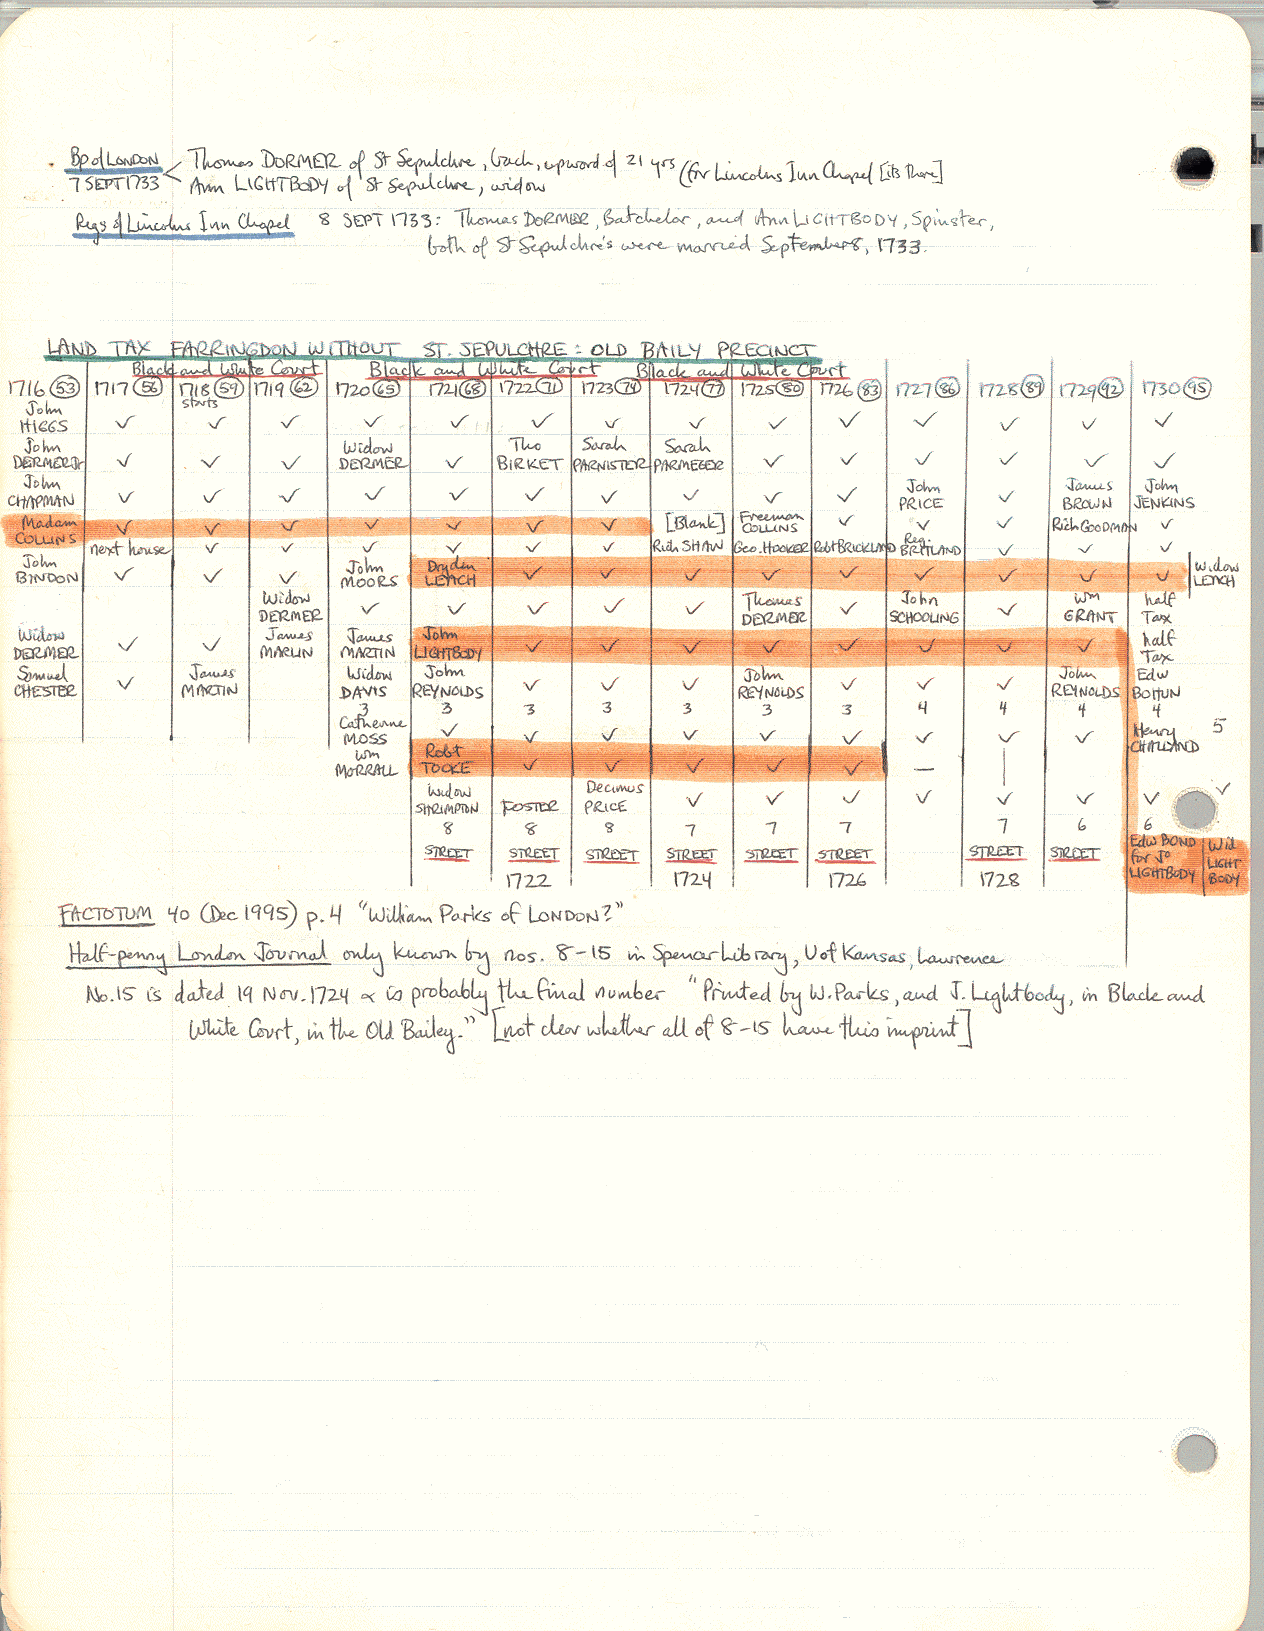 Bp of LONDON Thomas DORMER of St Sepulchre, bach, upward of 21 yrs (for Lincolns Inn Chapel [its there]
7 SEPT 1733 Ann LIGHTBODY of St Sepulchre, widow
Regs of Lincolns Inn Chapel 8 SEPT 1733: Thomas DORMER, Batchelor, and Ann LIGHTBODY, Spinster,
both of St Sepulchre's were married September 8, 1733.
LAND TAX FARRINGDON WITHOUT ST. SEPULCHRE: OLD BAILY PRECINCT
Black and White Court Black and White Court Black and White Court
1716 (53) 1717 (56) 1718 (59) 1719 (62) 1720 (65) 1721 (68) 1722 (71) 1723 (74) 1724 (77) 1725 (80) 1726 (83) 1727 (86) 1728 (89) 1729 (92) 1730 (95)
John starts
HIGGS ✓ ✓ ✓ ✓ ✓ ✓ ✓ ✓ ✓ ✓ ✓ ✓ ✓ ✓
John Widow Tho Sarah Sarah
DERMER Jr ✓ ✓ ✓ DERMER ✓ BIRKET PARNISTER PARMEGER ✓ ✓ ✓ ✓ ✓ ✓
John John James John
CHAPMAN ✓ ✓ ✓ ✓ ✓ ✓ ✓ ✓ ✓ ✓ PRICE ✓ BROWN JENKINS
Madam ✓ ✓ ✓ ✓ ✓ ✓ ✓ [Blank] Freeman ✓ ✓ ✓ Rich GOODMAN ✓
COLLINS COLLINS
next house ✓ ✓ ✓ ✓ ✓ ✓ Rich SHAW Geo. HOOKER Robt BRICKLAND Reg. BRITLAND ✓ ✓ ✓
John John Dryden Widow
BINDON ✓ ✓ ✓ MOORS LEACH ✓ ✓ ✓ ✓ ✓ ✓ ✓ ✓ ✓ LEACH
Widow Thomas John Wm half
DERMER ✓ ✓ ✓ ✓ ✓ DERMER ✓ SCHOOLING ✓ GRANT Tax
Widow James James John half
DERMER ✓ ✓ MARLIN MARTIN LIGHTBODY ✓ ✓ ✓ ✓ ✓ ✓ ✓ ✓ Tax
Samuel James Widow John John John Edw
CHESTER ✓ MARTIN DAVIS REYNOLDS ✓ ✓ ✓ REYNOLDS ✓ ✓ ✓ REYNOLDS BOHUN
3 3 3 3 3 3 3 4 4 4 4
Catherine Henry 5
MOSS ✓ ✓ ✓ ✓ ✓ ✓ ✓ ✓ ✓ CHALLAND
Wm Robt
MORRALL TOOKE ✓ ✓ ✓ ✓ ✓ — |
Widow Decimus ✓
SHRIMPTON FOSTER PRICE ✓ ✓ ✓ ✓ ✓ ✓ ✓
8 8 8 7 7 7 7 6 6
STREET STREET STREET STREET STREET STREET STREET STREET Edw BOND Wid
for Jo LIGHT
1722 1724 1726 1728 LIGHTBODY BODY
FACTOTUM 40 (Dec 1995) p.4 "William Parks of LONDON?"
Half-penny London Journal only known by nos. 8-15 in Spencer Library, U of Kansas, Lawrence
No.15 is dated 19 Nov. 1724 & is probably the final number "Printed by W. Parks, and J. Lightbody, in Black and
White Court, in the Old Bailey." [not clear whether all of 8-15 have this imprint]